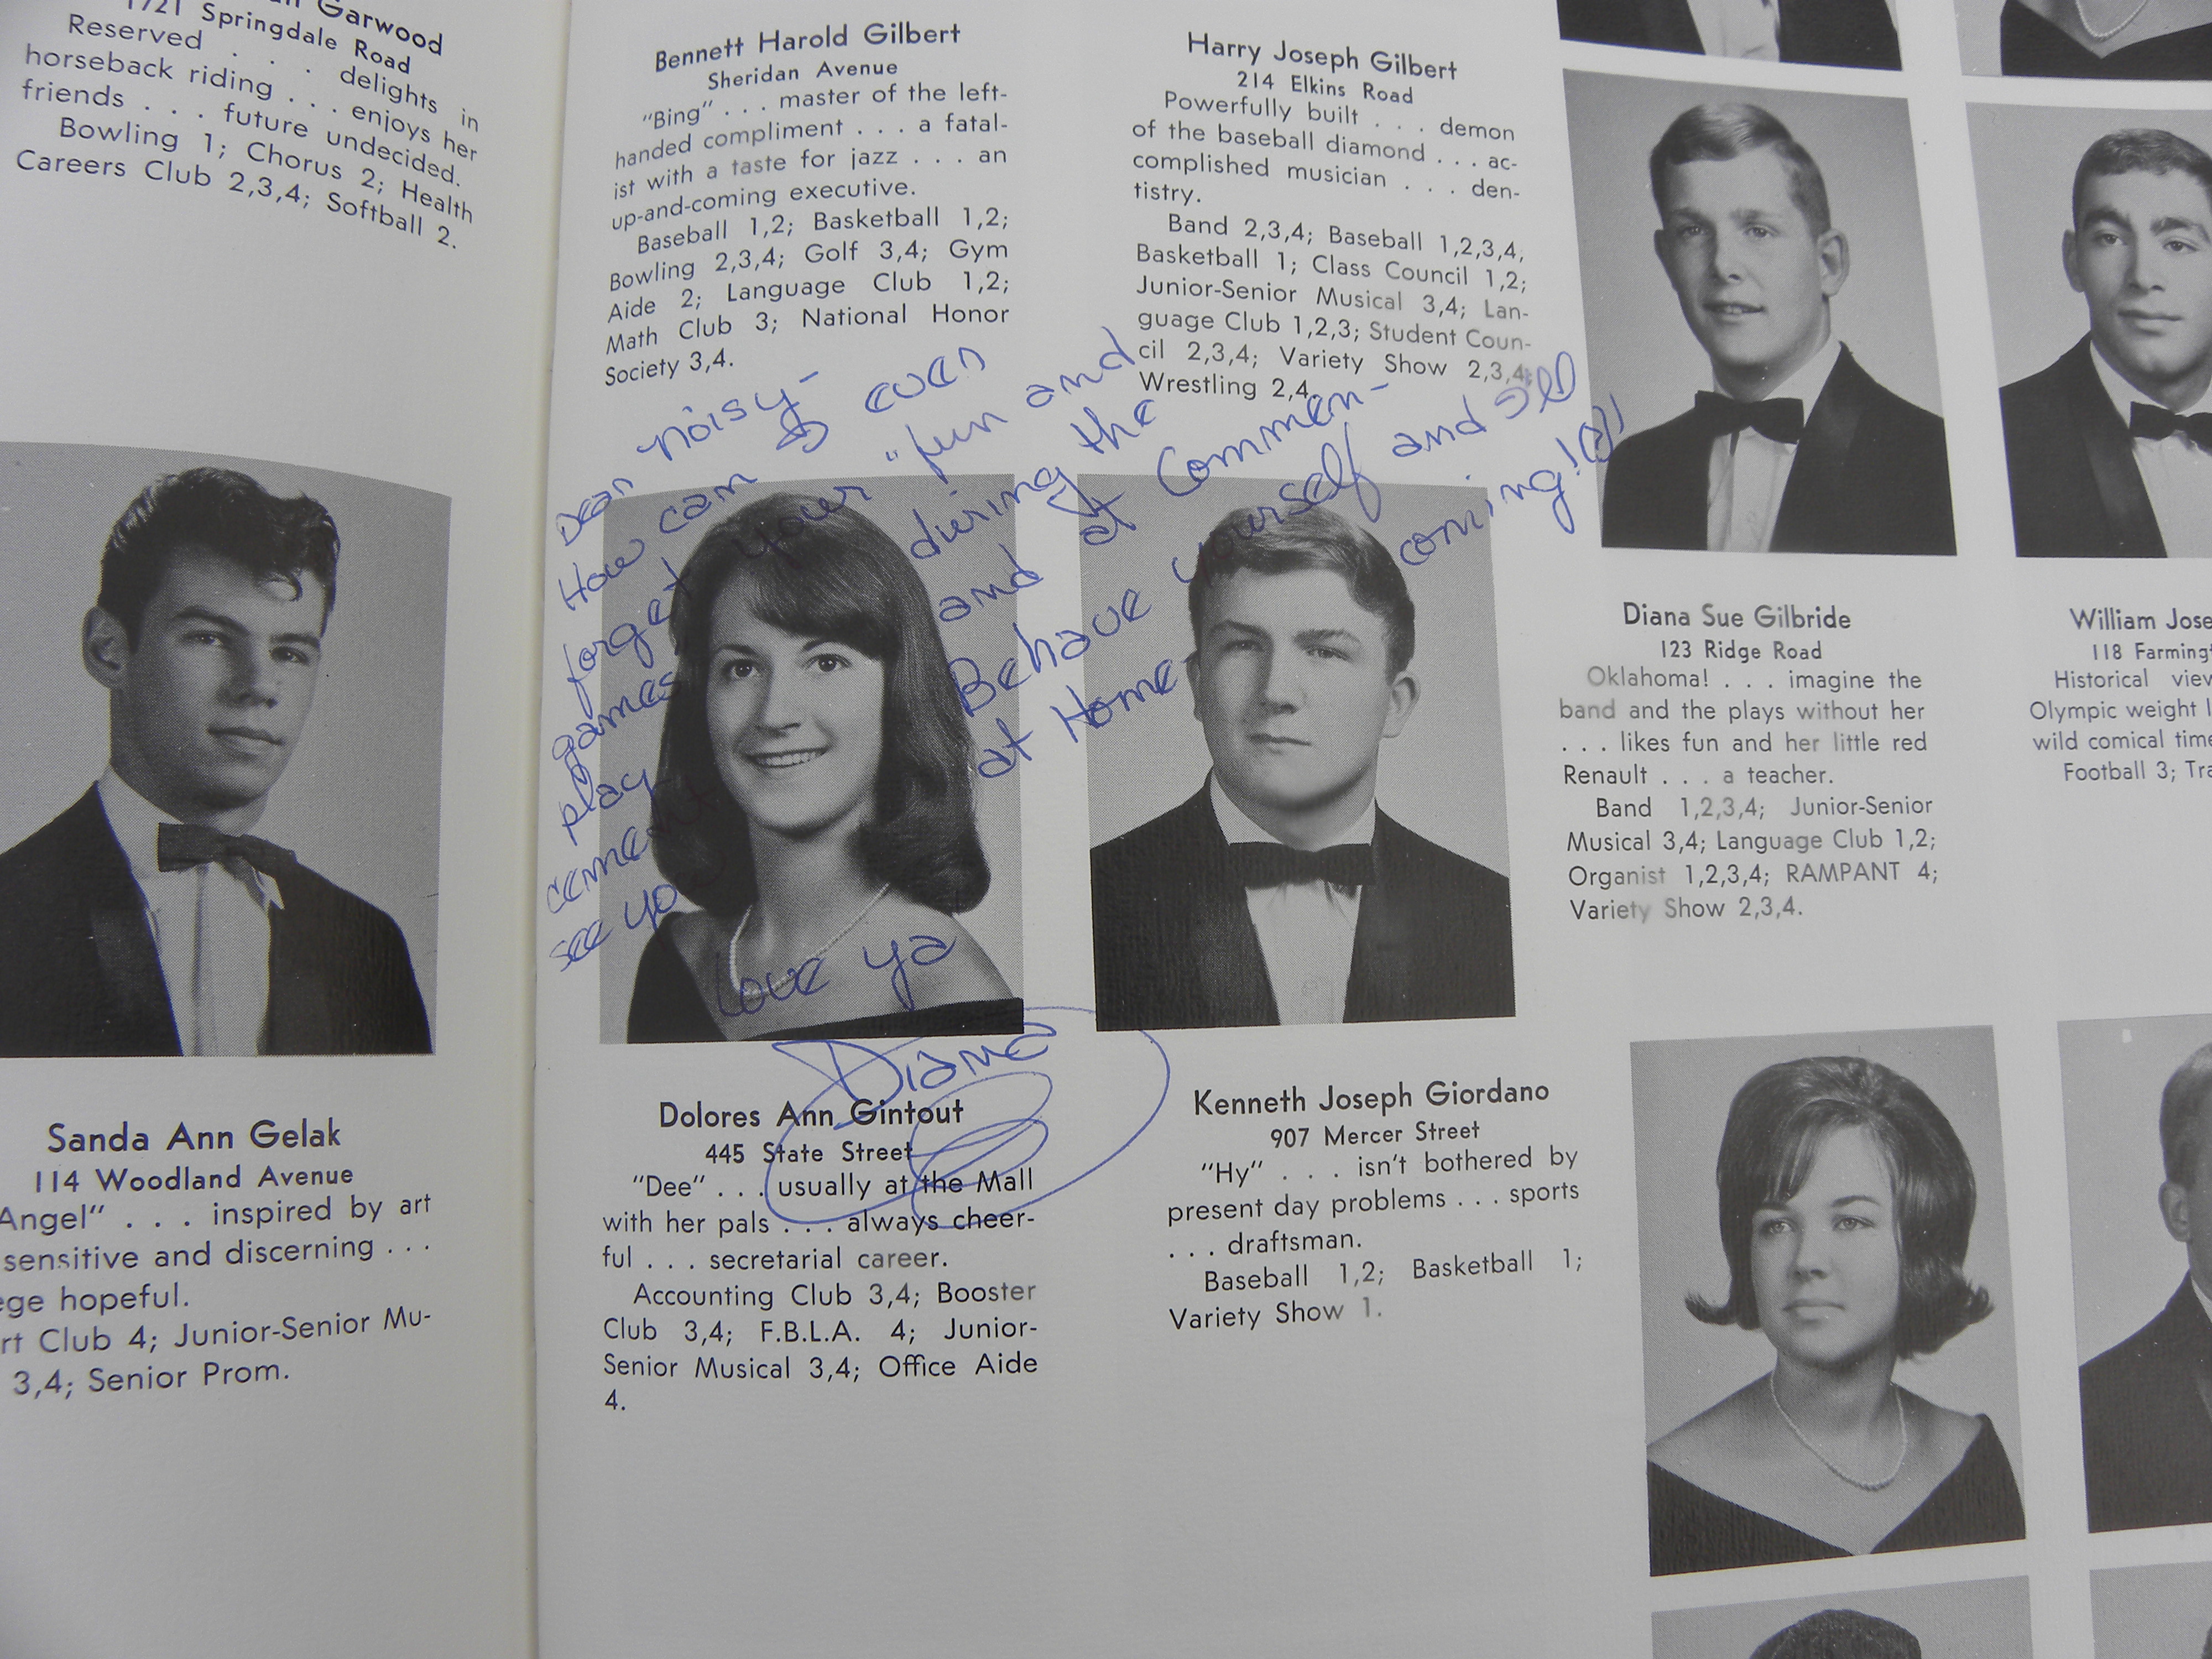 Garwood
1721 Springdale Road
Reserved . . . delights in
horseback riding . . . enjoys her
friends . . . future undecided.
Bowling 1; Chorus 2; Health
Careers Club 2,3,4; Softball 2.
Sanda Ann Gelak
114 Woodland Avenue
Angel" . . . inspired by art
sensitive and discerning . . .
ege hopeful.
rt Club 4; Junior-Senior Mu-
3,4; Senior Prom.
Bennett Harold Gilbert
Sheridan Avenue
"Bing" . . . master of the left-
handed compliment . . . a fatal-
ist with a taste for jazz . . . an
up-and-coming executive.
Baseball 1,2; Basketball 1,2;
Bowling 2,3,4; Golf 3,4; Gym
Aide 2; Language Club 1,2;
Math Club 3; National Honor
Society 3,4.
Harry Joseph Gilbert
214 Elkins Road
Powerfully built . . . demon
of the baseball diamond . . . ac-
complished musician . . . den-
tistry.
Band 2,3,4; Baseball 1,2,3,4,
Basketball 1; Class Council 1,2;
Junior-Senior Musical 3,4; Lan-
guage Club 1,2,3; Student Coun-
cil 2,3,4; Variety Show 2,3,4;
Wrestling 2,4.
Dear noisy-
How can I even
forget your "fun and
games during the
play and at Commen-
cement Behave yourself and I'll
see you at Home coming!
Love ya
Diane
Dolores Ann Gintout
445 State Street
"Dee" . . . usually at the Mall
with her pals . . . always cheer-
ful . . . secretarial career.
Accounting Club 3,4; Booster
Club 3,4; F.B.L.A. 4; Junior-
Senior Musical 3,4; Office Aide
4.
Kenneth Joseph Giordano
907 Mercer Street
"Hy" . . . isn't bothered by
present day problems . . . sports
. . . draftsman.
Baseball 1,2; Basketball 1;
Variety Show 1.
Diana Sue Gilbride
123 Ridge Road
Oklahoma! . . . imagine the
band and the plays without her
. . . likes fun and her little red
Renault . . . a teacher.
Band 1,2,3,4; Junior-Senior
Musical 3,4; Language Club 1,2;
Organist 1,2,3,4; RAMPANT 4;
Variety Show 2,3,4.
William Jose
118 Farming
Historical view
Olympic weight l
wild comical time
Football 3; Tra